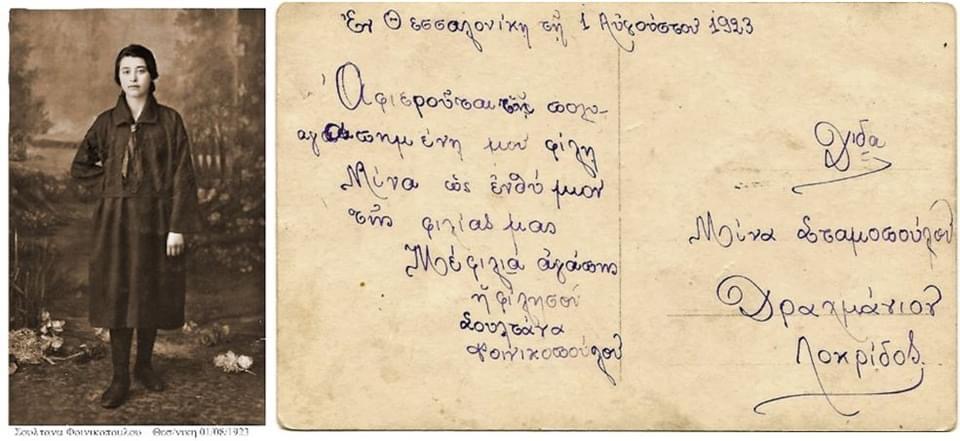 Ἐν Θεσσαλονίκῃ τῇ 1 Αὐγούστου 1923
Ἀφιεροῦται τῇ πολυ-
αγαπημένη μου φίλη
Μίνα ὡς ἐνθύμιον
τῆς φιλίας μας
Μέ φιλιά ἀγάπης
ἡ φίλη σου
Σουλτάνα
Φοινικοπούλου
Δίδα
Μίνα Σταμοπούλου
Δραχμάνιον
Λοκρίδος.
Σουλτανα Φοινικοπουλου Θεσ/νικη 01/08/1923